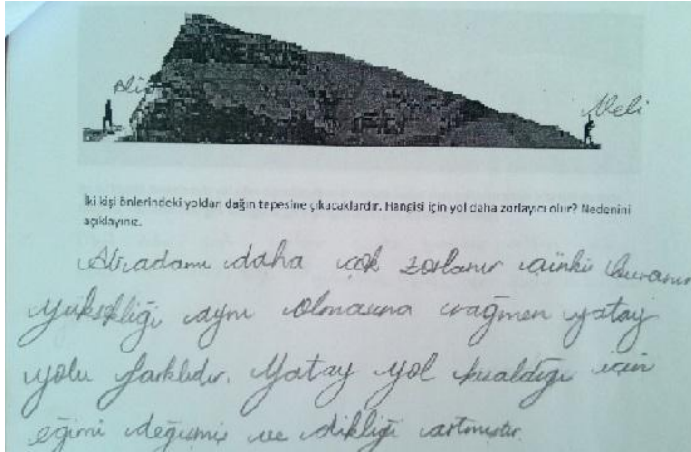 Ali
Veli
İki kişi önlerindeki yoldan dağın tepesine çıkacaklardır. Hangisi için yol daha zorlayıcı olur? Nedenini
açıklayınız.
Ali adamı daha çok zorlanır çünkü buranın
yüksekliği aynı olmasına rağmen yatay
yolu farklıdır. Yatay yol kısaldığı için
eğimi değişmiş ve dikliği artmıştır.